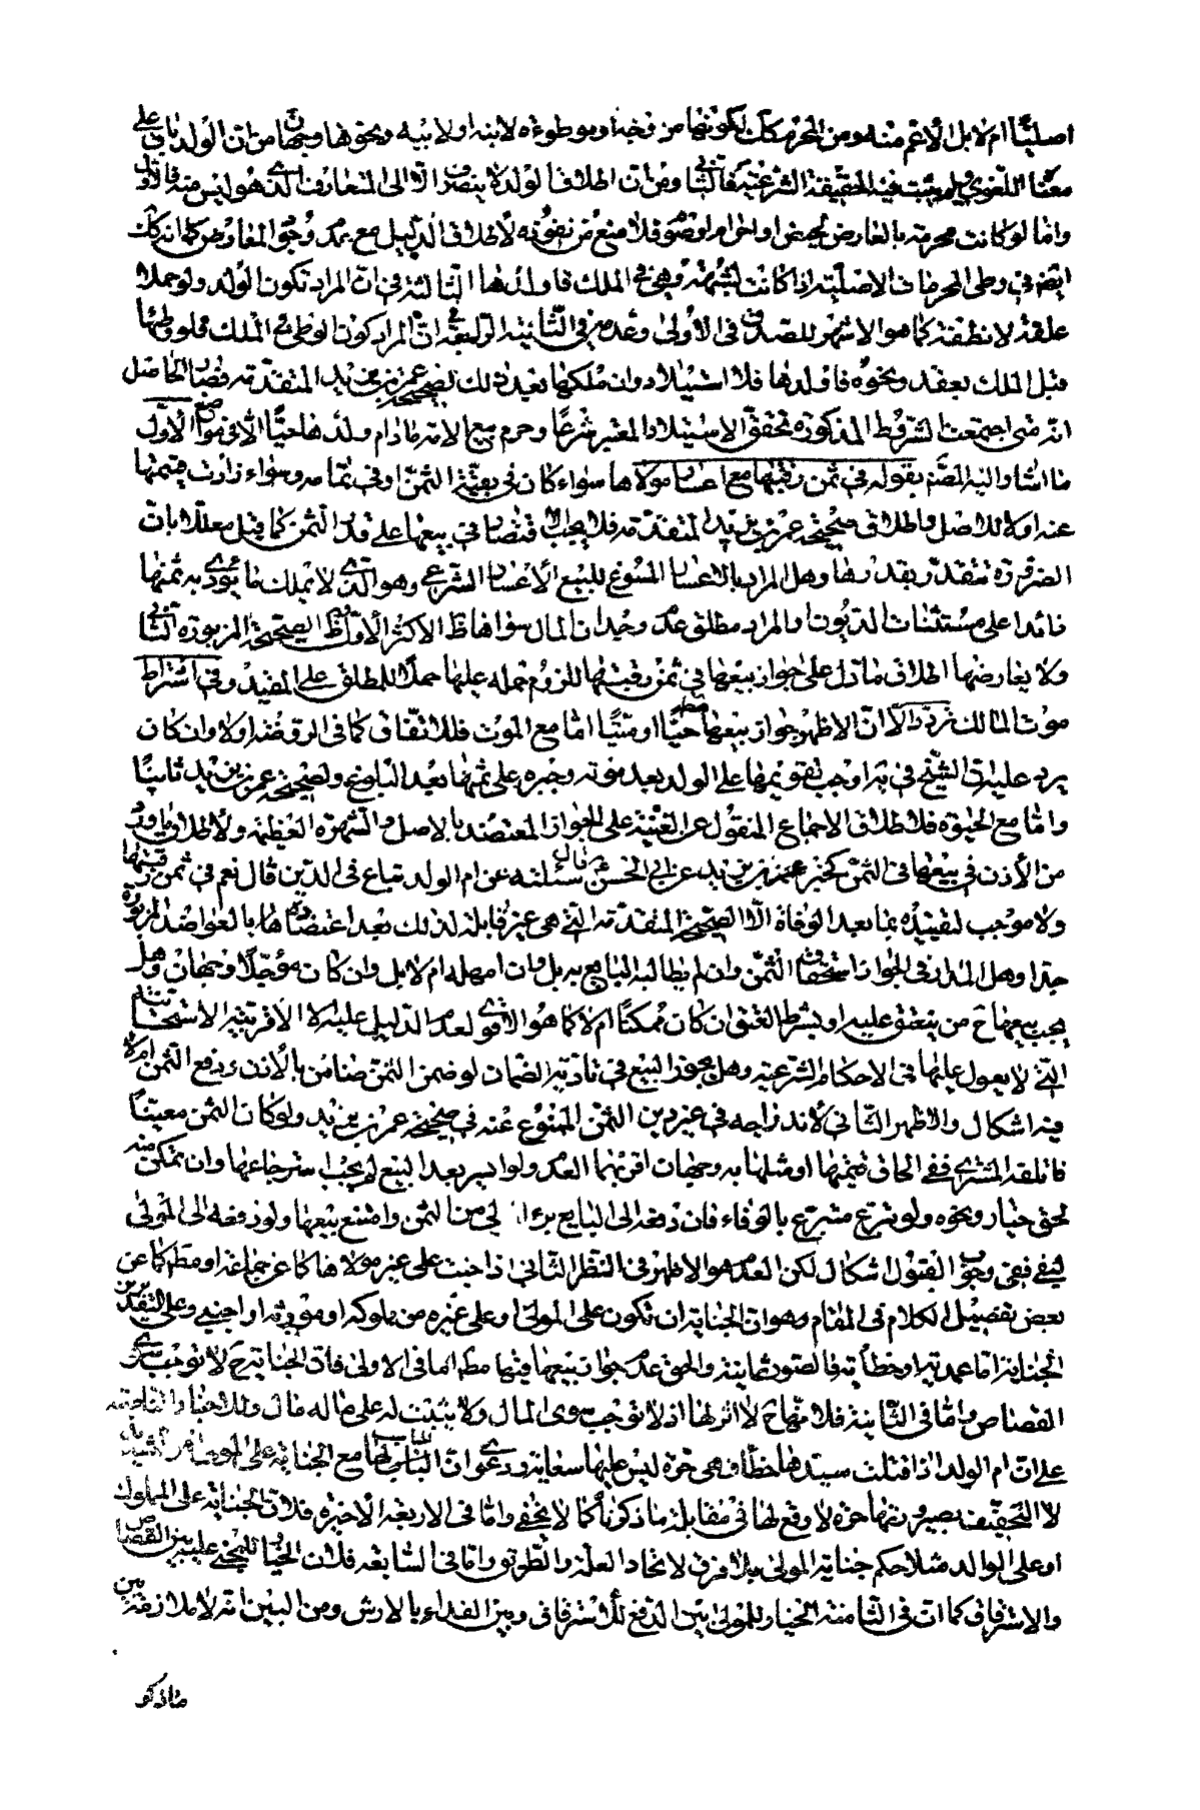 اصليًّا ام لا بل الأعم منه ومن المحرم كك لكونها من وموطوءة لابنه او لابيه ونحوها وجهان من ان الولد باق على
معناه اللغوي ولم يثبت فيه الحقيقة الشرعية كالثاني ومن ان اطلاق الولد لا ينصرف الّا الى المتعارف الّذي هو ليس منه فالاول
وامّا لو كانت محرمة بالعارض لحيض او احرام او صوم فلا منع من نفوذه لاطلاق الدّليل مع عدم وجود المعارض كما انه كك
ايضم في وطى المحرمات الاصليّة اذا كانت لشبهة وهي في الملك فاولدها الثالثة في ان المراد تكون الولد ولو حملا
علقة لا نطفة كما هو الاشهر للصدق في الأولى وعدمه في الثّانية الرّابعة انّ المراد كون الوطي في الملك فلو وطئها
قبل الملك بعقد ونحوه فاولدها فلا استيلاد وان ملكها بعد ذلك لصحيحة عمر بن يزيد المتقدّمة فصار الحاصل
انّه متى اجتمعت الشروط المذكورة تحقق الاستيلاد المعتبر شرعًا وحرم بيع الامة ما دام ولدها حيًّا الّا في مواضع الأول
ما اشار اليه المصّنم بقوله في ثمن رقبتها مع اعسار مولاها سواء كان في بقيّة الثّمن او في تمامه وسواء زادت قيمتها
عنه اولا للاصل واطلاق صحيحة عمر بن يزيد المتقدّمة فلا يجب الاقتصار في بيعها على قدر الثمن كما قيل معلّلا بانّ
الضرورة تتقدّر بقدرها وهل المراد بالاعسار المسوّغ للبيع الأعسار الشرعي وهو الّذي لا يملك ما يؤدّي به ثمنها
زائدا على مستثنيات الديون او المراد مطلق عدم وجدان المال سواها ظ الاكثر الأوّل وظ الصحيحة المزبورة الثاني
ولا يعارضها اطلاق ما دل على جواز بيعها في ثمن رقبتها للزوم حمله عليها حملًا للمطلق على المقيد وفي اشتراط
موت المالك تردد الّا انّ الاظهر جواز بيعها حيًّا او ميّتًا امّا مع الموت فللاتّفاق كما في الروضة اولا وان كان
يرد عليه ان الشّيخ في يه اوجب تقويمها على الولد بعد موته وجبره على ثمنها بعد البلوغ ولصحيحة عمر بن يزيد ثانيًا
وامّا مع الحيوة فلاطلاق الاجماع المنقول عن الغنية على الجواز المعتضد بالاصل والشهرة العظيمة ولاطلاق ما ورد
من الأذن في بيعها في الثمن كخبر عمر بن يزيد عن ابي الحسن ع قال سئلته عن ام الولد تباع في الدين قال نعم في ثمن رقبتها
ولا موجب لتقييده بما بعد الوفاة الّا الصحيحة المتقدّمة الّتي هي غير قابلة لذلك بعد اعتضاده بالعواضد المزبورة
جدا وهل المدار في الجواز استحقاق الثّمن وان لم يطالبه البايع به بل وان امهله ام لا بل وان كان مؤجّلًا وجهان وهل
يجب بيعها ح من ينعتق عليه او بشرط العتق ان كان ممكنًا ام لا كما هو الاقوى لعدم الدّليل عليه الا الاقربية الاستحسانية
الّتي لا يعول عليها في الاحكام الشّرعية وهل يجوز البيع في تادية الضمان لو ضمن الثمن ضامن بالأذن ودفع الثمن ام لا
فيه اشكال والاظهر الثّاني لاندراجه في غير دين الثّمن الممنوع عنه في صحيحة عمر بن يزيد ولو كان الثمن معينًا
فاتلفه المشتري ففي الحاق قيمتها او مثلها به وجهان اقربهما العدم ولو ايسر بعد البيع لم يجب استرجاعها وان تمكن منه
لحق خيار ونحوه ولو تبرع متبرع بالوفاء فان دفعه الى البايع برء من الثمن وامتنع بيعها ولو دفعه الى المولى
ليفي ففي وجوب القبول اشكال لكن العدم هو الاظهر في النظر الثّاني اذا جنت على غير مولاها كما عن جماعة او مطم كما عن
بعض تفصيل الكلام في المقام وهو ان الجناية ان تكون على المولى او على غيره من مملوكه او مورثه او اجنبي وعلى التقديرين
الجناية امّا عمدية او خطأية فالصور ثمانية والحق عدم جواز بيعها فيها مطم اما في الاولى فانّ الجناية ح لا توجب سوى
القصاص وامّا في الثّانية فلانّها ح لا اثر لها اذ لا توجب سوى المال ولا يثبت له على ماله مال وللاخبار الناطقة
على ان ام الولد اذا قتلت سيدها خطأ فهي حرة ليس عليها سعاية ودعوى انّ المناسب لها مع الجناية على المولى
لا التخفيف بصيرورتها حرة لا وقع لها في مقابلة ما ذكرناه كما لا يخفى وامّا في الاربعة الأخيرة فلانّ الجناية على المملوك
او على الوالد مثلا حكم جناية المولى بلا فرق لاتحاد العلّة والطّريق وامّا في السّابعة فلانّ الخيار للمجني عليه بين القصاص
والاسترقاق كما ان في الثّامنة الخيار للمولى بين الدّفع للاسترقاق وبين الفداء بالارش ومن البيّن انّه لا ملازمة بين
ماذكر